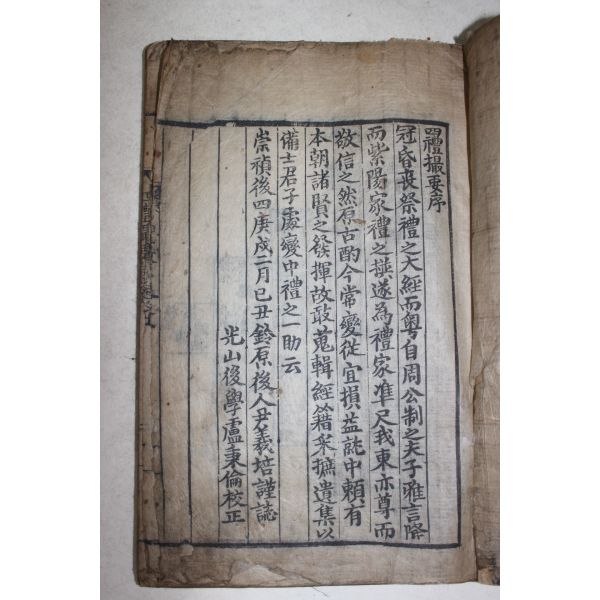 四禮撮要序
冠昏喪祭禮之大經而粤自周公制之夫子雅言降
而紫陽家禮之撰遂為禮家準尺我東亦尊而
敬信之然原古酌今常變從宜損益就中賴有
本朝諸賢之發揮故敢蒐輯經籍采摭遺集以
備士君子處變中禮之一助云
崇禎後四庚戌二月己丑鈴原後人尹義培謹誌
光山後學盧秉倫校正